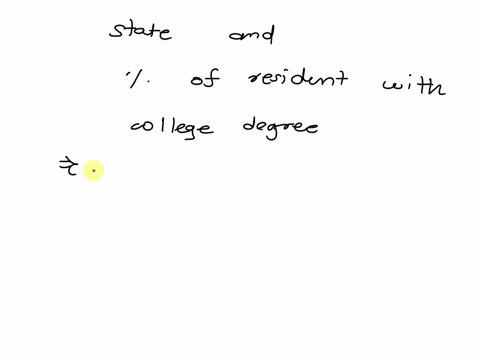 state and
% of resident with
college degree
⇒